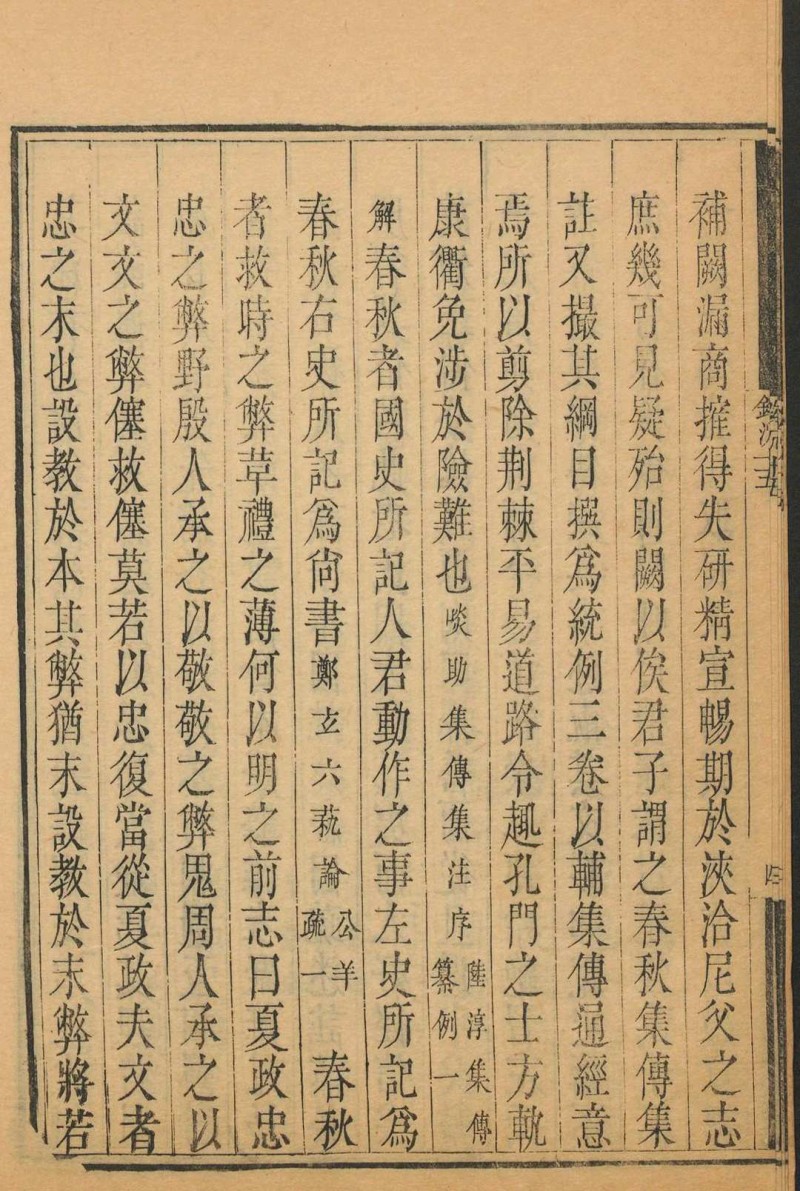 補闕漏商搉得失研精宣暢期於浹洽尼父之志
庶幾可見疑殆則闕以俟君子謂之春秋集傳集
註又撮其綱目撰為統例三卷以輔集傳通經意
焉所以剪除荆棘平易道路令趣孔門之士方軌
康衢免涉於險難也啖助集傳集注序陸淳集傳纂例一
解春秋者國史所記人君動作之事左史所記爲
春秋右史所記爲尙書鄭玄六蓺論公羊疏一春秋
者救時之弊革禮之薄何以明之前志曰夏政忠
忠之弊野殷人承之以敬敬之弊鬼周人承之以
文文之弊僿救僿莫若以忠復當從夏政夫文者
忠之末也設教於本其弊猶末設教於末弊將若